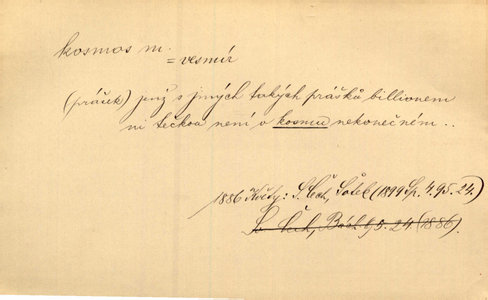 kosmos m.
= vesmír
(prášek) jenž s jiných takých prášků billionem
ni tečkou není v kosmu nekonečném ..
1886 Květy: S. Čech, Šotek (1899 Sp. 4. 95. 24.)
Sv. Čech, Básl. 95. 24. (1886).